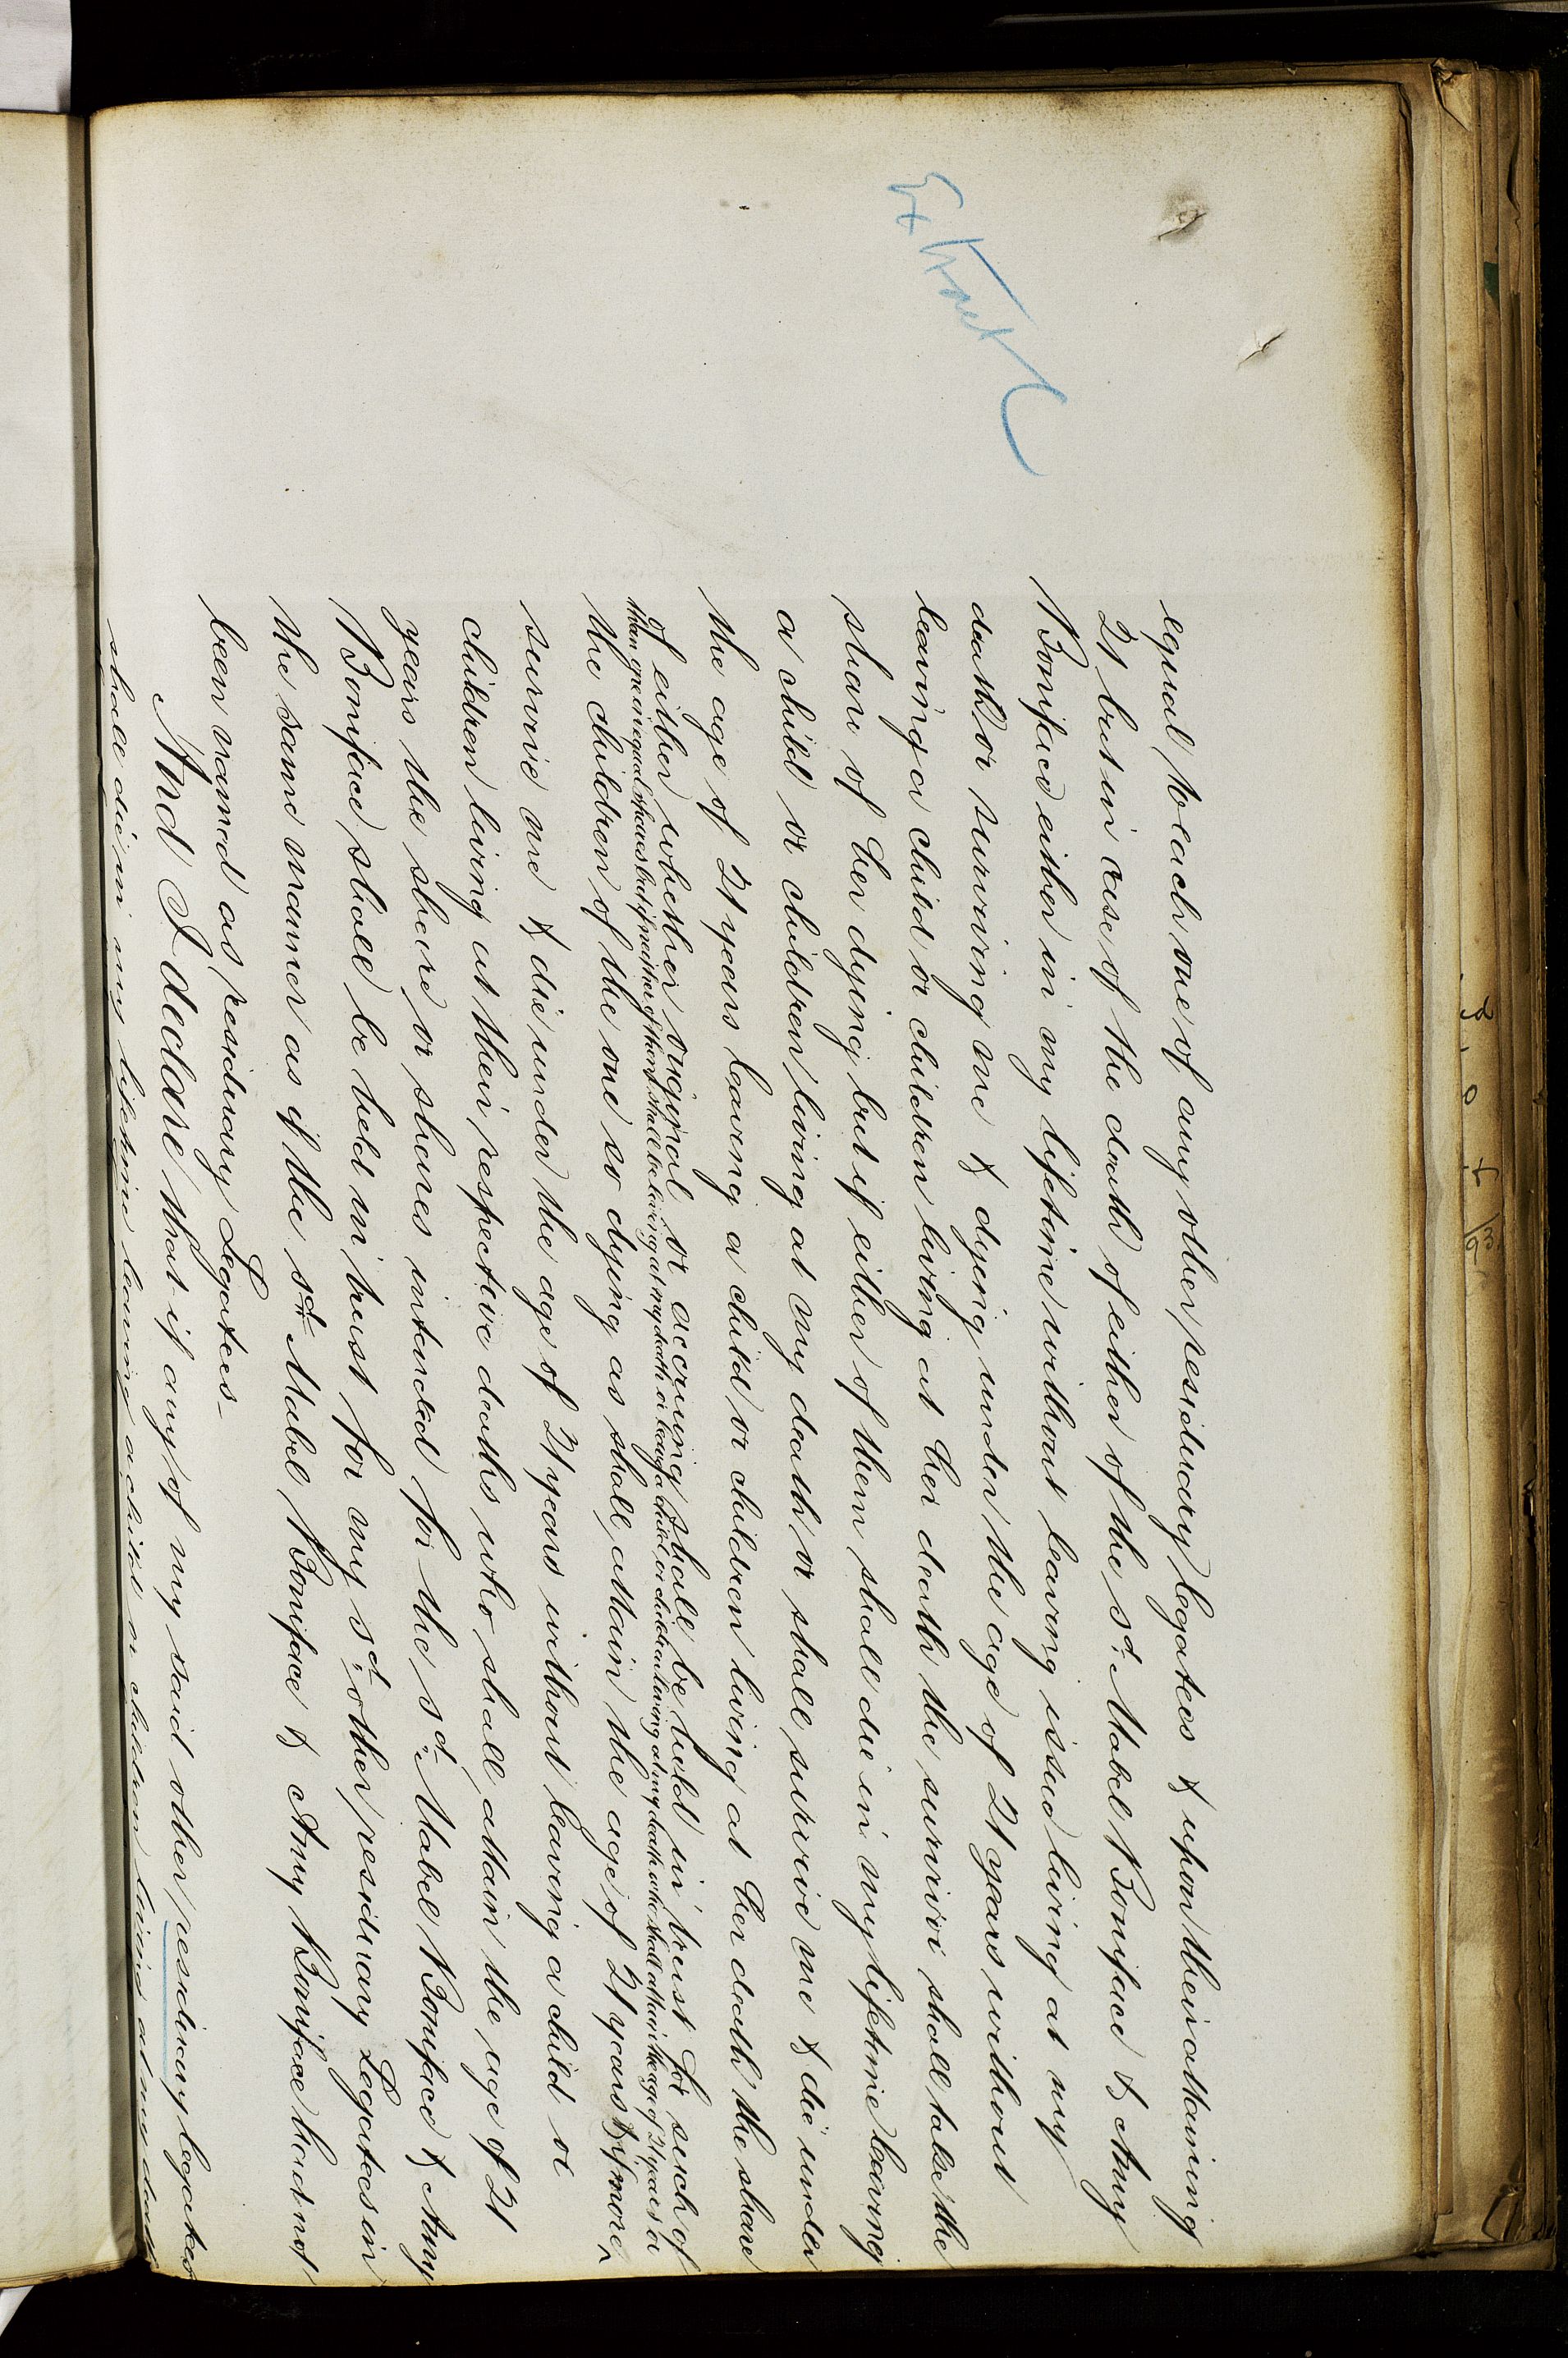 Extract
equal to each one of any other residuary legatees & upon their attaining
21 but in case of the death of either of the sd. Mabel Boniface & Amy
Boniface either in my lifetime without leaving issue living at my
death or surviving me & dying under the age of 21 years without
leaving a child or children living at her death the survivor shall take the
share of her dying but if either of them shall die in my lifetime leaving
a child or children living at my death or shall survive me & die under
the age of 21 years leaving a child or children living at her death the share
of either whether original or accruing shall be held in trust for such of
the children of the one so dying as shall attain the age of 21 years & if more ^
than one in equal shares but if neither of them shall be living at my death or leave a child or children living at my death who shall attain the age of 21 years or
survive me & die under the age of 21 years without leaving a child or
children living at their respective deaths who shall attain the age of 21
years the share or shares intended for the sd. Mabel Boniface & Amy
Boniface shall be held in trust for my sd. other residuary Legatees in
the same manner as if the sd. Mabel Boniface & Amy Boniface had not
been named as residuary Legatees_
And I declare that if any of my said other residuary legatees
shall die in my lifetime leaving a child or children living at my death